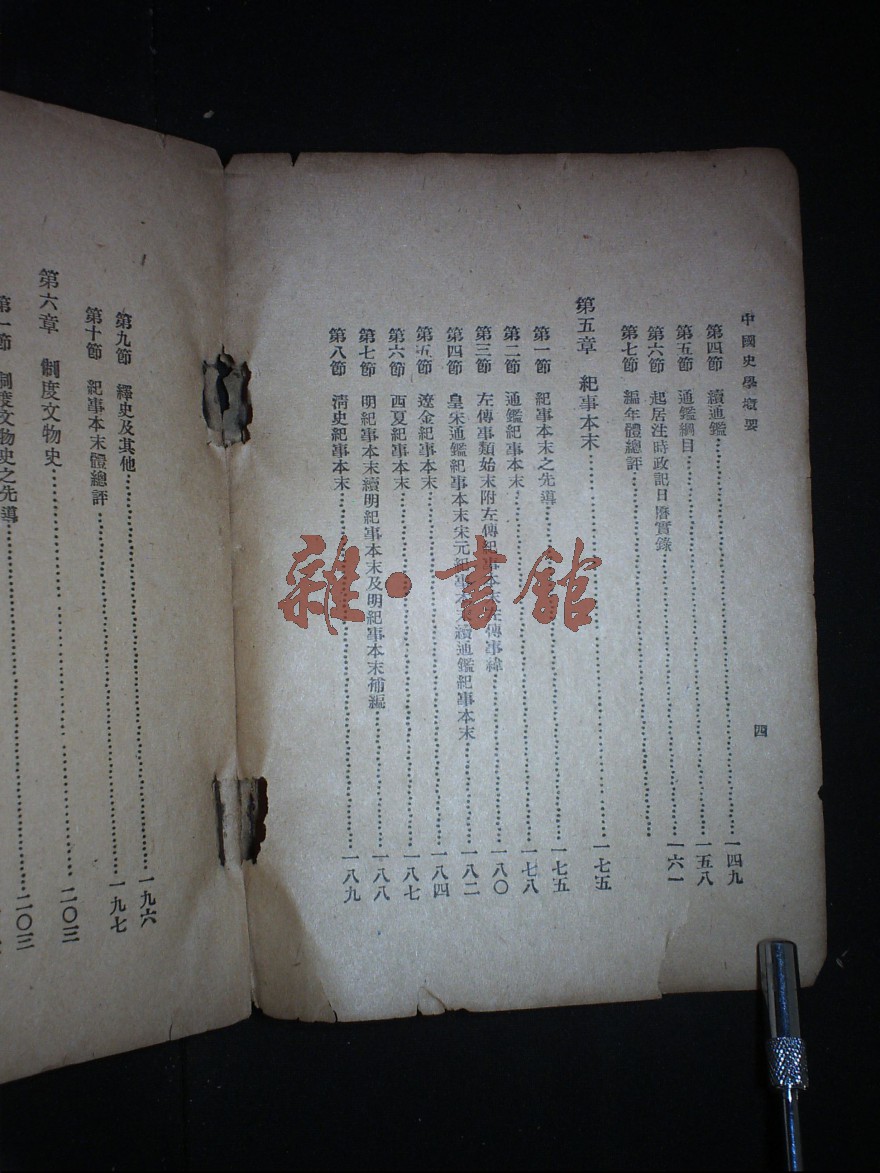 中國史學概要
四
第四節 續通鑑……一四九
第五節 通鑑綱目……一五八
第六節 起居注時政記日曆實錄……一六一
第七節 編年體總評……
第五章 紀事本末……一七五
第一節 紀事本末之先導……一七五
第二節 通鑑紀事本末……一七八
第三節 左傳事類始末附左傳紀事本末左傳事緯……一八〇
第四節 皇宋通鑑紀事本末宋元紀事本末續通鑑紀事本末……一八二
第五節 遼金紀事本末……一八四
第六節 西夏紀事本末……一八七
第七節 明紀事本末續明紀事本末及明紀事本末補編……一八八
第八節 清史紀事本末……一八九
第九節 繹史及其他……一九六
第十節 紀事本末體總評……一九七
第六章 制度文物史……二〇三
第一節 制度文物史之先導……二〇三
雜·書館